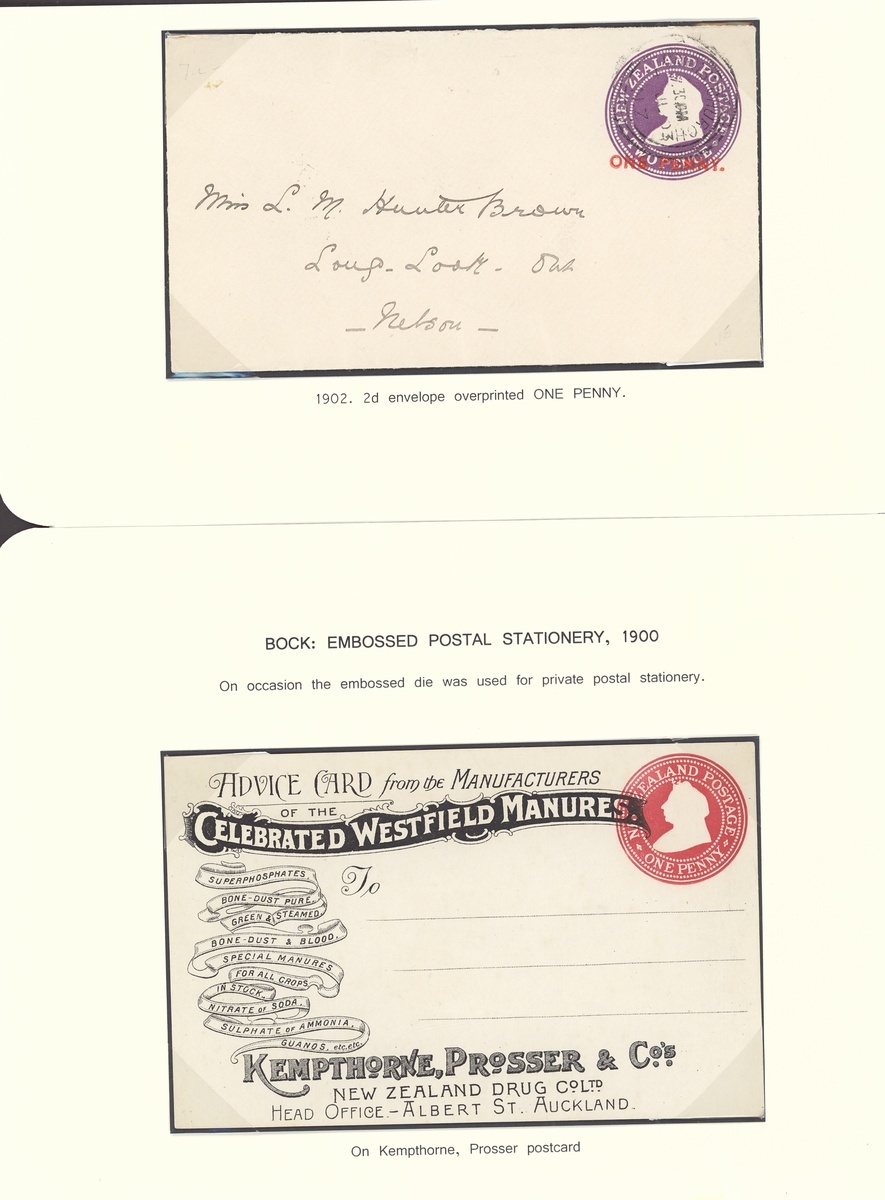 NEW ZEALAND POSTAGE
TWO PENCE
ONE PENNY.
Miss L. M. Hunter Brown
Long-Look-Out
— Nelson —
1902. 2d envelope overprinted ONE PENNY.
BOCK: EMBOSSED POSTAL STATIONERY, 1900
On occasion the embossed die was used for private postal stationery.
ADVICE CARD from the MANUFACTURERS
OF THE
CELEBRATED WESTFIELD MANURES.
ZEALAND POSTAGE
ONE PENNY
SUPERPHOSPHATES.
To
BONE-DUST PURE.
GREEN & STEAMED.
BONE-DUST & BLOOD.
SPECIAL MANURES
FOR ALL CROPS
IN STOCK.
NITRATE OF SODA.
SULPHATE OF AMMONIA.
GUANOS. etc. etc.
KEMPTHORNE, PROSSER & Co's
NEW ZEALAND DRUG CO LTD
HEAD OFFICE.-ALBERT ST. AUCKLAND.
On Kempthorne, Prosser postcard